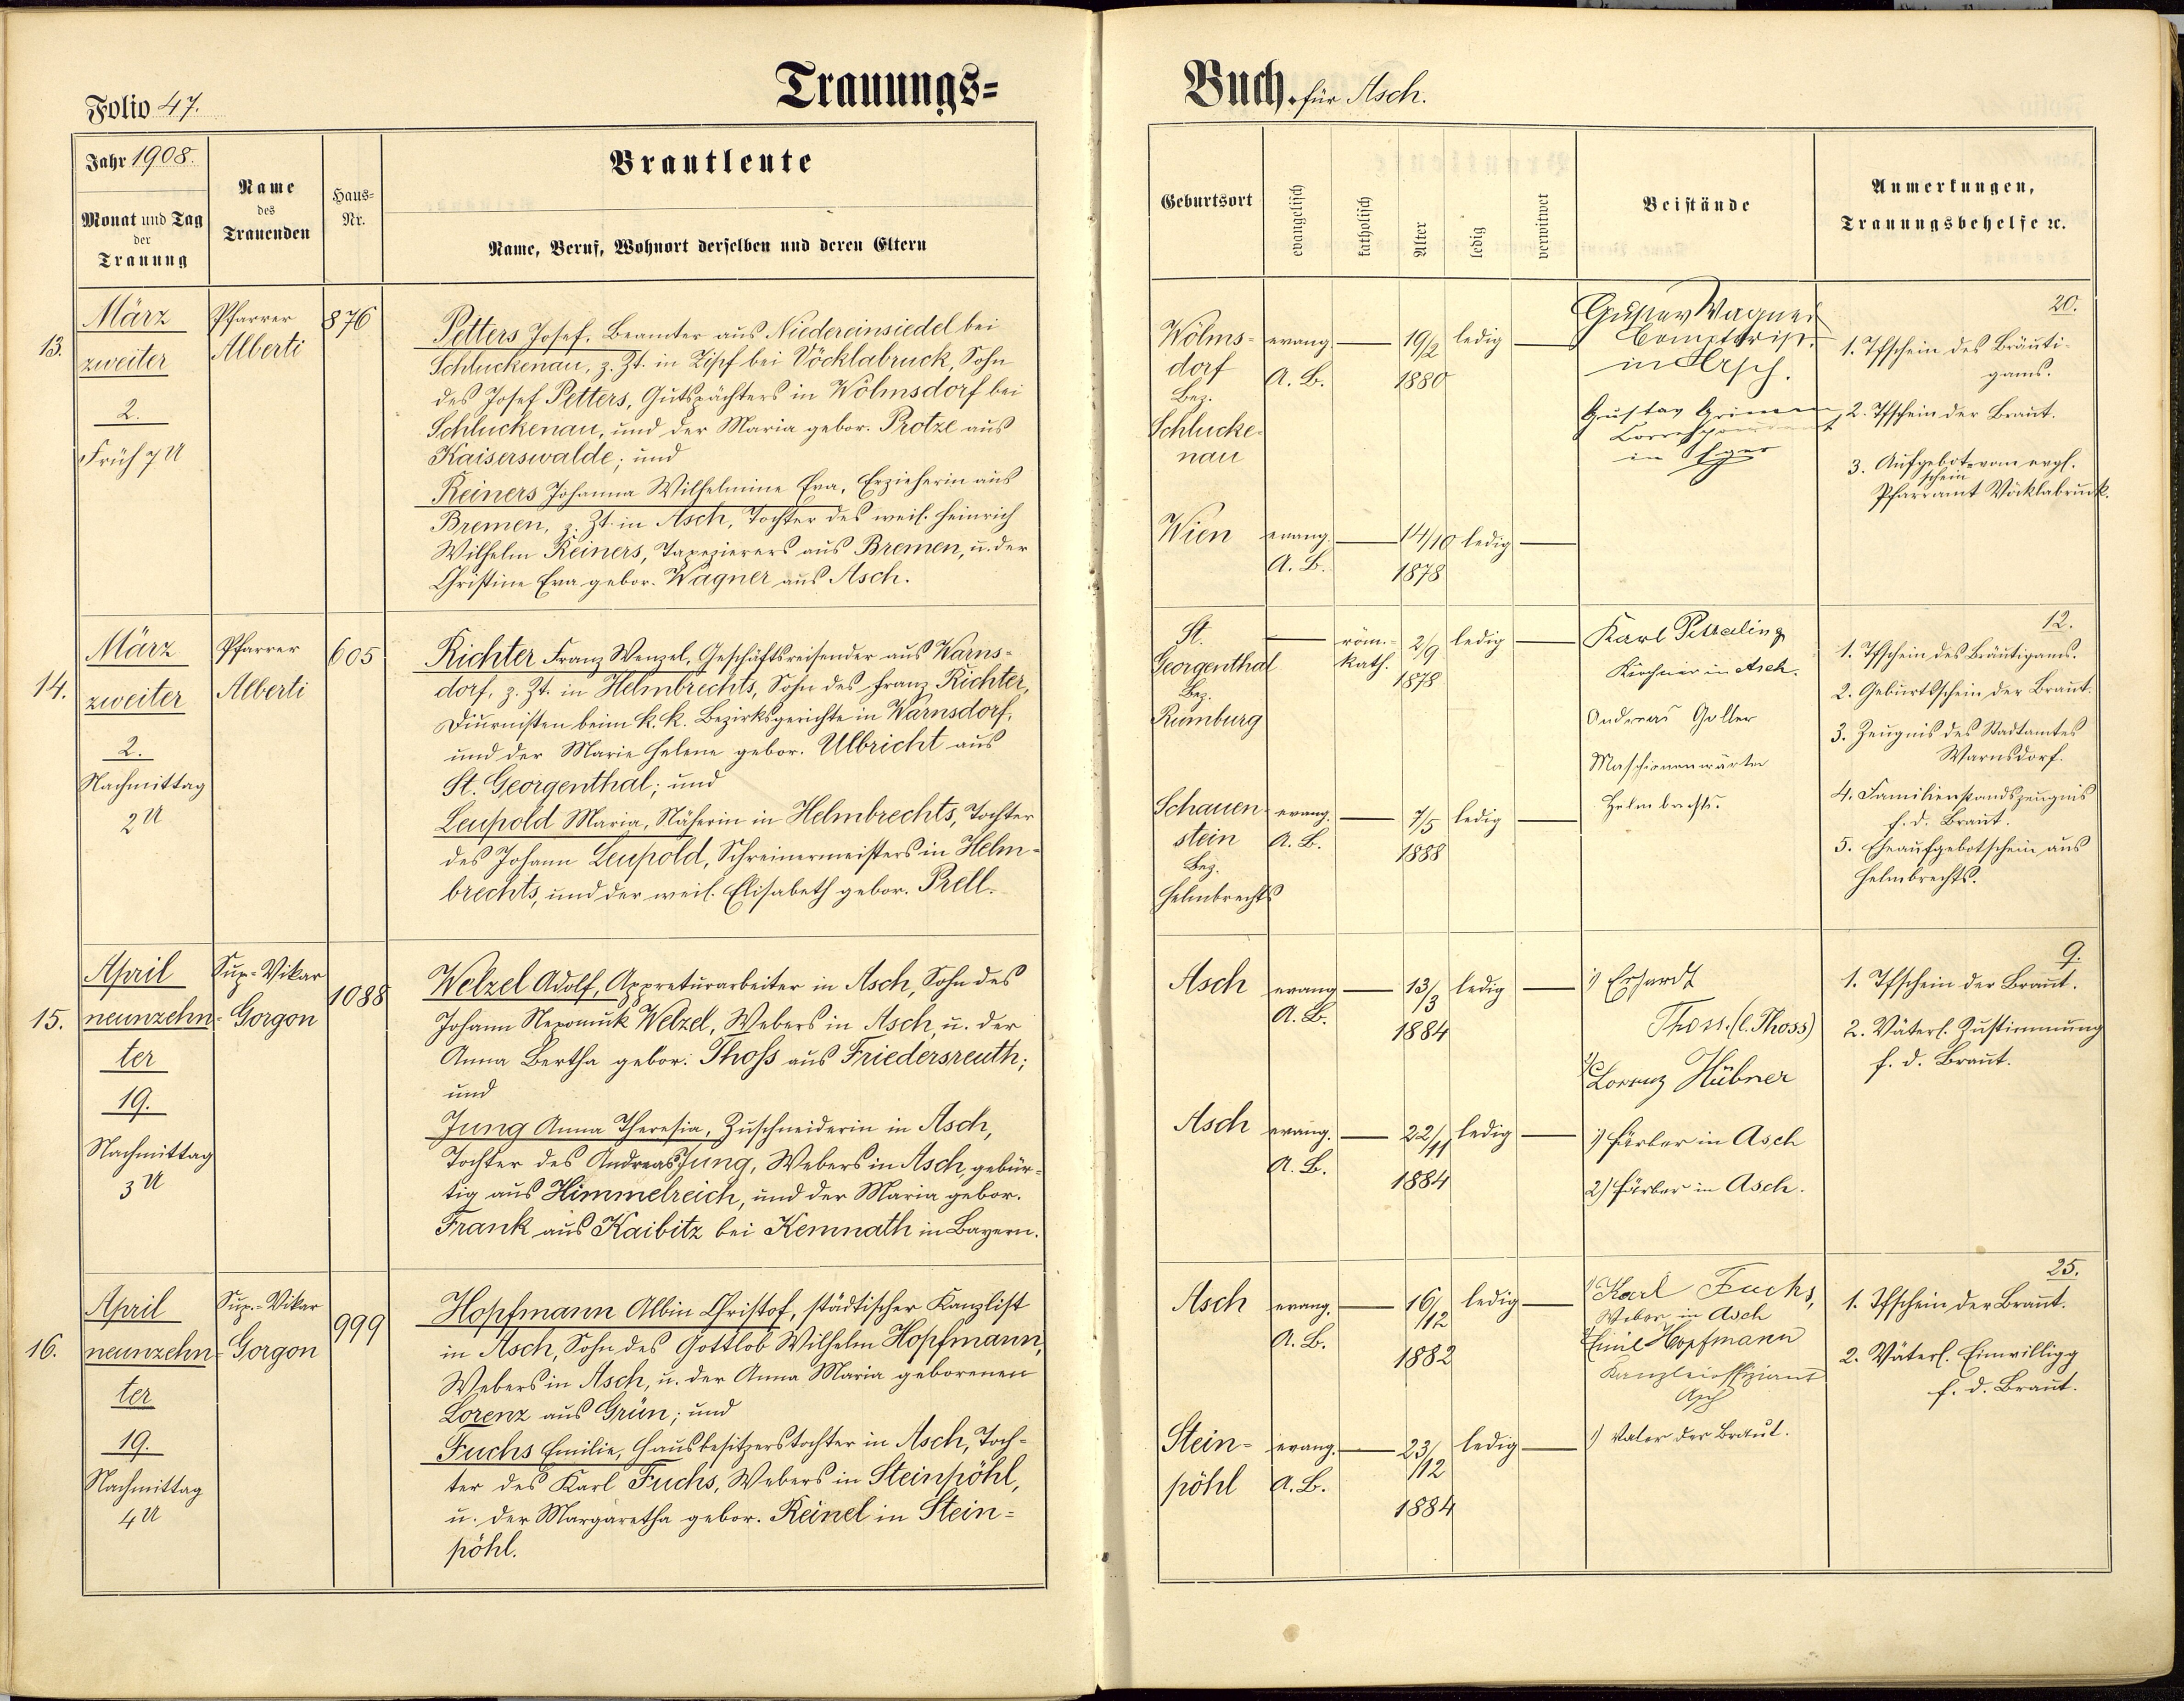 Folio 47.
Trauungs=
Buch. für Asch.
Jahr 1908.
Monat und Tag
der
Trauung
Name
des
Trauenden
Haus=
Nr.
Brautleute
Name, Beruf, Wohnort derselben und deren Eltern
Geburtsort
evangelisch
katholisch
Alter
ledig
verwitwet
Beistände
Anmerkungen,
Trauungsbehelfe ꝛc.
13.
März
zweiter
2.
Früh 7 U
Pfarrer
Alberti
876
Petters Josef, Beamter aus Niedereinsiedel bei
Schluckenau, z. Zt. in Zipf bei Vöcklabruck, Sohn
des Josef Petters, Gutspächters in Wölmsdorf bei
Schluckenau, und der Maria gebor. Protze aus
Kaiserswalde; und
Reiners Johanna Wilhelmine Eva, Erzieherin aus
Bremen, z. Zt. in Asch, Tochter des weil. Heinrich
Wilhelm Reiners, Tapezierers aus Bremen, u. der
Christine Eva gebor. Wagner aus Asch.
Wölms-
dorf
Bez.
Schlucke-
nau
evang.
A. B.
19/2
1880
ledig
Wien
evang.
A. B.
14/10
1878
ledig
Gustav Wagner
Comptorist
in Asch.
Gustav Grimm
Correspondent
in Eger
20.
1. Tfschein des Bräuti-
gams.
2. Tfschein der Braut.
3. Aufgebot- vom evgl.
schein
Pfarramt Vöcklabruck.
14.
März
zweiter
2.
Nachmittag
2 U
Pfarrer
Alberti
605
Richter Franz Wenzel, Geschäftsreisender aus Warns-
dorf, z. Zt. in Helmbrechts, Sohn des Franz Richter,
Diurnisten beim k. k. Bezirksgerichte in Warnsdorf,
und der Marie Helene gebor. Ulbricht aus
St. Georgenthal; und
Leupold Maria, Näherin in Helmbrechts, Tochter
des Johann Leupold, Schreinermeisters in Helm-
brechts, und der weil. Elisabeth gebor. Prell.
St.
Georgenthal
Bez.
Rumburg
röm.-
kath.
2/9
1878
ledig
Schauen-
stein
Bez.
Helmbrechts
evang.
A. B.
7/5
1888
ledig
Karl
Kirchner in Asch.
Andreas Goller
Maschienenwärter
Helmbrechts.
12.
1. Tfschein des Bräutigams.
2. Geburtsschein der Braut.
3. Zeugnis des Stadtamtes
Warnsdorf.
4. Familienstandszeugnis
f. d. Braut.
5. Eheaufgebotschein aus
Helmbrechts.
15.
April
neunzehn-
ter
19.
Nachmittag
3 U
Sup.-Vikar
Gorgon
1088
Welzel Adolf, Appreturarbeiter in Asch, Sohn des
Johann Nepomuk Welzel, Webers in Asch, u. der
Anna Bertha gebor. Thoß aus Friedersreuth;
und
Jung Anna Theresia, Zuschneiderin in Asch,
Tochter des Andreas Jung, Webers in Asch, gebür-
tig aus Himmelreich, und der Maria gebor.
Frank aus Kaibitz bei Kemnath in Bayern.
Asch
evang.
A. B.
13/3
1884
ledig
Asch
evang.
A. B.
22/11
1884
ledig
1) Erhardt
Thoss. (l. Thoss)
2) Lorenz Hübner
1) Färber in Asch
2) Färber in Asch.
9.
1. Tfschein der Braut.
2. Väterl. Zustimmung
f. d. Braut.
16.
April
neunzehn-
ter
19.
Nachmittag
4 U
Sup.-Vikar
Gorgon
999
Hopfmann Albin Christof, städtischer Kanzlist
in Asch, Sohn des Gottlob Wilhelm Hopfmann,
Webers in Asch, u. der Anna Maria geborenen
Lorenz aus Grün; und
Fuchs Emilie, Hausbesitzerstochter in Asch, Toch-
ter des Karl Fuchs, Webers in Steinpöhl,
u. der Margaretha gebor. Reinel in Stein-
pöhl.
Asch
evang.
A. B.
16/12
1882
ledig
Stein-
pöhl
evang.
A. B.
23/12
1884
ledig
1) Karl Fuchs,
Weber in Asch
2) Emil Hopfmann
Kanzleioffiziant
Asch
1) Vater der Braut.
25.
1. Tfschein der Braut.
2. Väterl. Einwilligg
f. d. Braut.